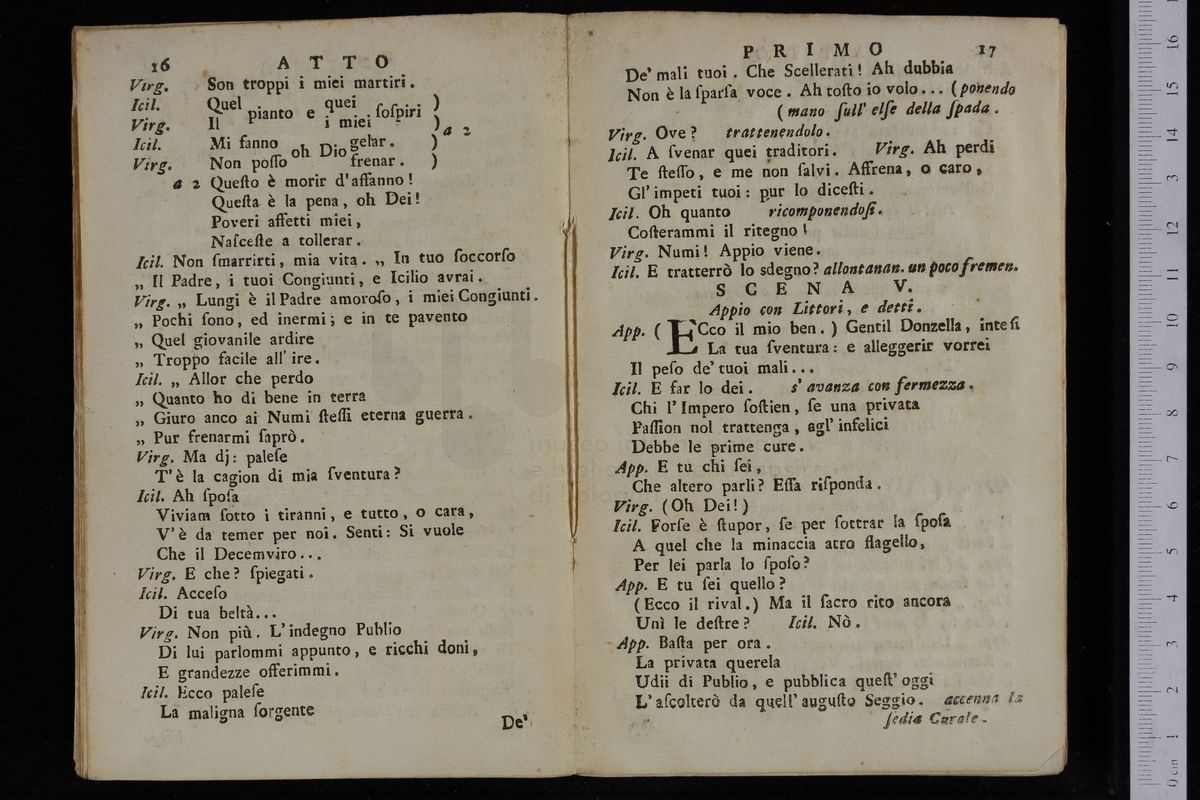 16 ATTO
Virg. Son troppi i miei martiri.
Icil. Quel pianto e quei ſoſpiri )
Virg. Il pianto e i miei ſoſpiri ) a 2
Icil. Mi fanno oh Dio gelar. )
Virg. Non poſſo oh Dio frenar. )
a 2 Queſto è morir d'affanno!
Queſta è la pena, oh Dei!
Poveri affetti miei,
Naſceſte a tollerar.
Icil. Non ſmarrirti, mia vita. „ In tuo ſoccorſo
„ Il Padre, i tuoi Congiunti, e Icilio avrai.
Virg. „ Lungi è il Padre amoroſo, i miei Congiunti.
„ Pochi ſono, ed inermi; e in te pavento
„ Quel giovanile ardire
„ Troppo facile all' ire.
Icil. „ Allor che perdo
„ Quanto ho di bene in terra
„ Giuro anco ai Numi ſteſſi eterna guerra.
„ Pur frenarmi ſaprò.
Virg. Ma dj: paleſe
T'è la cagion di mia ſventura?
Icil. Ah ſpoſa
Viviam ſotto i tiranni, e tutto, o cara,
V'è da temer per noi. Senti: Si vuole
Che il Decemviro...
Virg. E che? ſpiegati.
Icil. Acceſo
Di tua beltà...
Virg. Non più. L'indegno Publio
Di lui parlommi appunto, e ricchi doni,
E grandezze offerimmi.
Icil. Ecco paleſe
La maligna ſorgente
De'
PRIMO 17
De' mali tuoi. Che Scellerati! Ah dubbia
Non è la ſparſa voce. Ah toſto io volo... (ponendo
(mano ſull' elſe della ſpada.
Virg. Ove? trattenendolo.
Icil. A ſvenar quei traditori. Virg. Ah perdi
Te ſteſſo, e me non ſalvi. Affrena, o caro,
Gl'impeti tuoi: pur lo diceſti.
Icil. Oh quanto ricomponendoſi.
Coſterammi il ritegno!
Virg. Numi! Appio viene.
Icil. E tratterrò lo sdegno? allontanan. un poco fremen.
SCENA V.
Appio con Littori, e detti.
App. ( ECco il mio ben. ) Gentil Donzella, inteſi
La tua ſventura: e alleggerir vorrei
Il peſo de' tuoi mali...
Icil. E far lo dei. s' avanza con fermezza.
Chi l'Impero ſoſtien, ſe una privata
Paſſion nol trattenga, agl' infelici
Debbe le prime cure.
App. E tu chi ſei,
Che altero parli? Eſſa riſponda.
Virg. (Oh Dei!)
Icil. Forſe è ſtupor, ſe per ſottrar la ſpoſa
A quel che la minaccia atro flagello,
Per lei parla lo ſpoſo?
App. E tu ſei quello?
(Ecco il rival.) Ma il ſacro rito ancora
Unì le deſtre? Icil. Nò.
App. Baſta per ora.
La privata querela
Udii di Publio, e pubblica queſt' oggi
L' aſcolterò da quell' auguſto Seggio. accenna la
ſedia Curale.